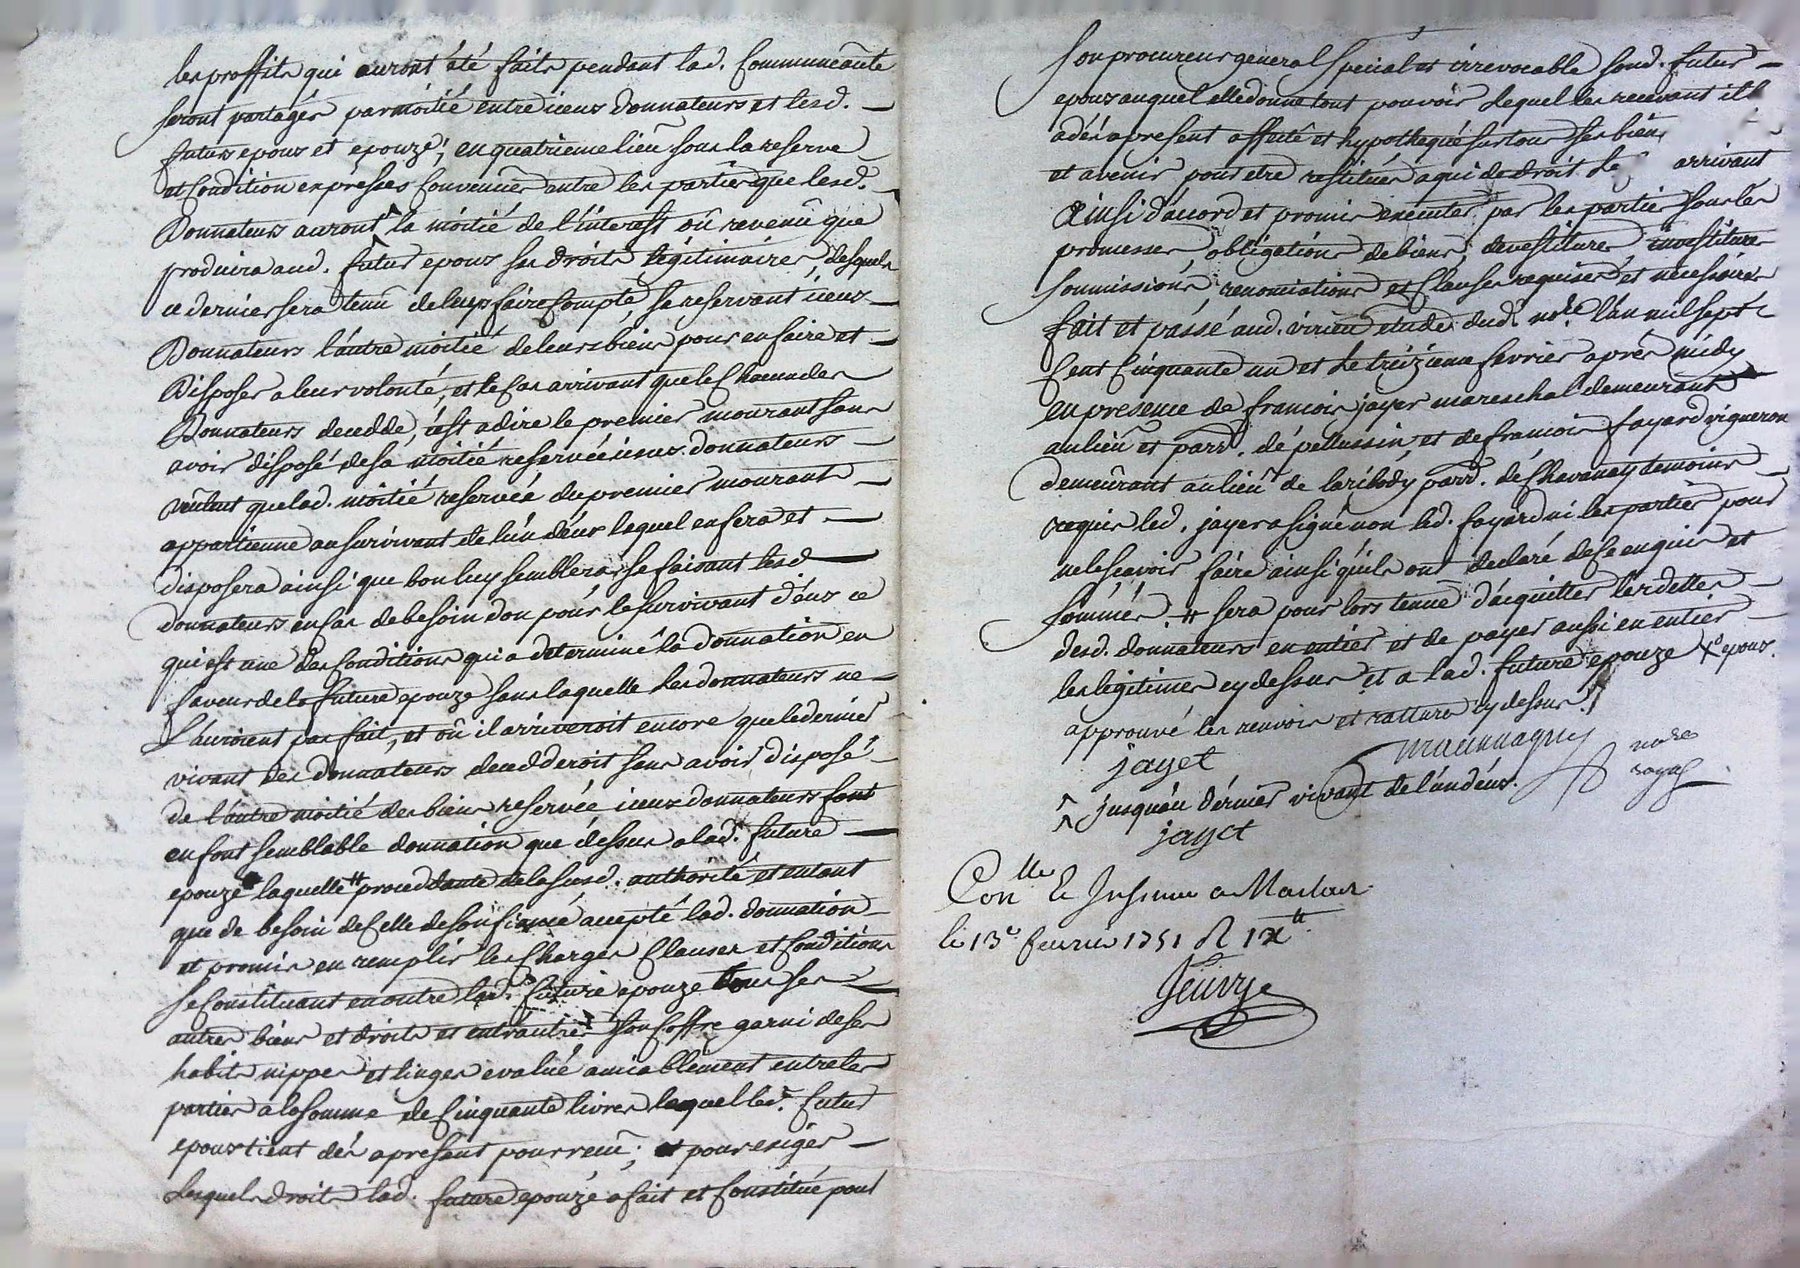 les proffits qui auront été faits pendant lad. Communeauté
seront partagés par moitié entre iceux donnateurs et lesd.
futurs epoux et epouze, en quatrieme lieû sous la reserve
et Condition expresses Convenües entre les parties que lesd.
Donnateurs auront ^ la moitié de l'interest oû revenû que
produira aud. futur epoux ses droits légitimaires, desquels
ce dernier sera tenû de leurs faire Compte, se reservant iceux
Donnateurs l'autre moitié de leurs biens pour en faire et
Disposer a leur volonté, et le Cas arrivant que le Chacun des
Donnateurs decedde, c'est a dire le premier mourant sans
avoir disposé de sa moitié reservée iceux donnateurs
veulent que lad. moitié reservée du premier mourant
appartienne au survivant de l'un d'eux lequel en fera et
disposera ainsi que bon luy semblera, se faisant lesd
donnateurs en Cas de besoin don pour le survivant d'eux ce
qui est une des Conditions qui a determiné la donnation en
faveur de la future epouze sans laquelle les donnateurs ne
l'auroient pas fait, et oû il arriveroit encore que le dernier
vivant des donnateurs decedderoit sans avoir disposé
de l'autre moitié des biens reservée iceux donnateurs font
en font semblable donnation que dessus a lad. future
epouze laquelle # proceddante de la susd. authorité et entant
que de besoin de Celle de son fiancé accepté lad. donnation
et promis en remplir les Charges Clauses et Conditions
se Constituant en outre lad. future epouze tous ses
autres biens et droits et entrautres son Coffre garni de ses
habits nippes et linges evalué amiablement entre les
parties a la somme de Cinquante livres lequel led. futur
epoux tient dés apresent pour receu, et pour exiger
lesquels droits lad. future epouze a fait et Constitué pour
son procureur general special et irrevocable sond. futur
epoux auquel elle donne tout pouvoir lequel les recevant il
a dés apresent affecté et hypothequé sur tous ses biens
et avenir pour etre restitués a qui de droit. le arrivant
Ainsi d'accord et promis executer par les parties sous les
promesses, obligations de biens, devestitures, investitures
soumissions, renonciations et Clauses requises et necessaires
fait et passé aud. virieu etude dud. nore. l'an mil sept
Cent Cinquante un et le treizieme fevrier aprés midy
en presence de francois jayet mareschal demeurant
au lieû et parr. de pellussin, et de francois fayard vigneron
demeurant au lieû de la ribody parr. de Chavanay temoins
requis led. jayet a signé non led. fayard ni les parties pour
ne le scavoir faire ainsi qu'ils ont declaré de ce enquis et
sommés. # sera pour lors tenue d'acquitter les dettes
desd. donnateurs en entier et de payer aussi en entier
les legitimes cy dessus et a lad. future epouze X° epoux.
approuvé les renvois et rature cy dessus.
jayet
nore
royal
^ jusqu'au dernier vivant de l'un d'eux.
jayet
Conlle & Insinué a Maclas
le 13e fevrier 1751 R